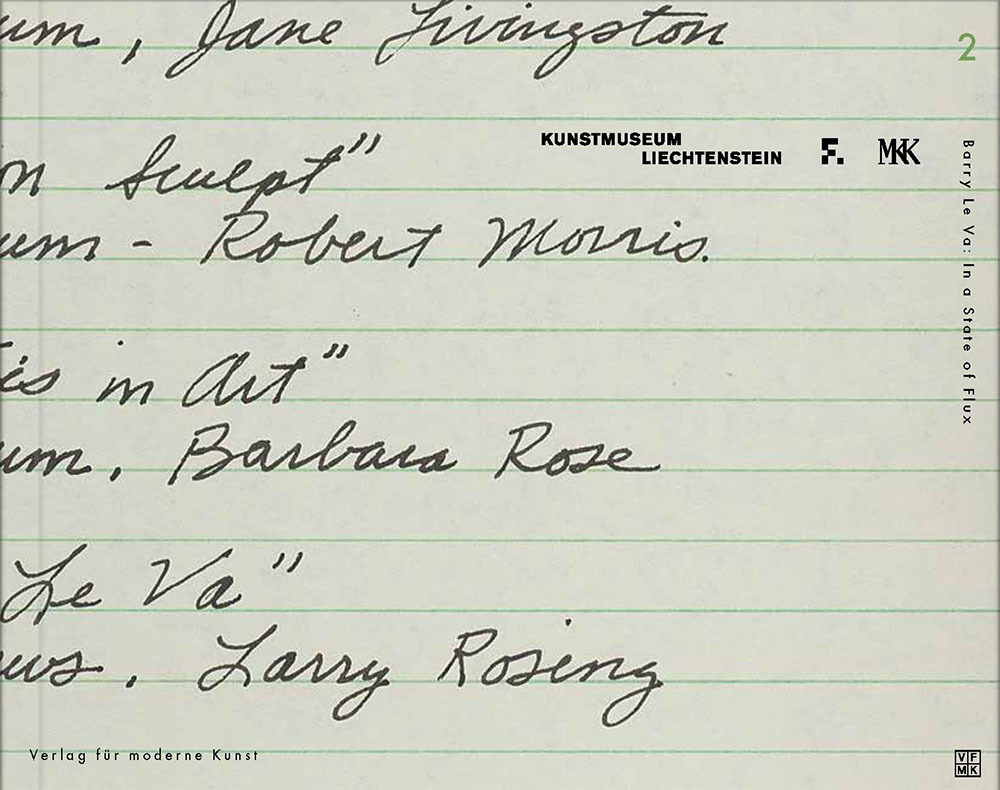 um, Jane Livingston
2
KUNSTMUSEUM
LIECHTENSTEIN F. MKK
on Sculpt"
um - Robert Morris.
is in Art"
um, Barbara Rose
Le Va"
ws. Larry Rosing
Barry Le Va: In a State of Flux
Verlag für moderne Kunst
VF
MK